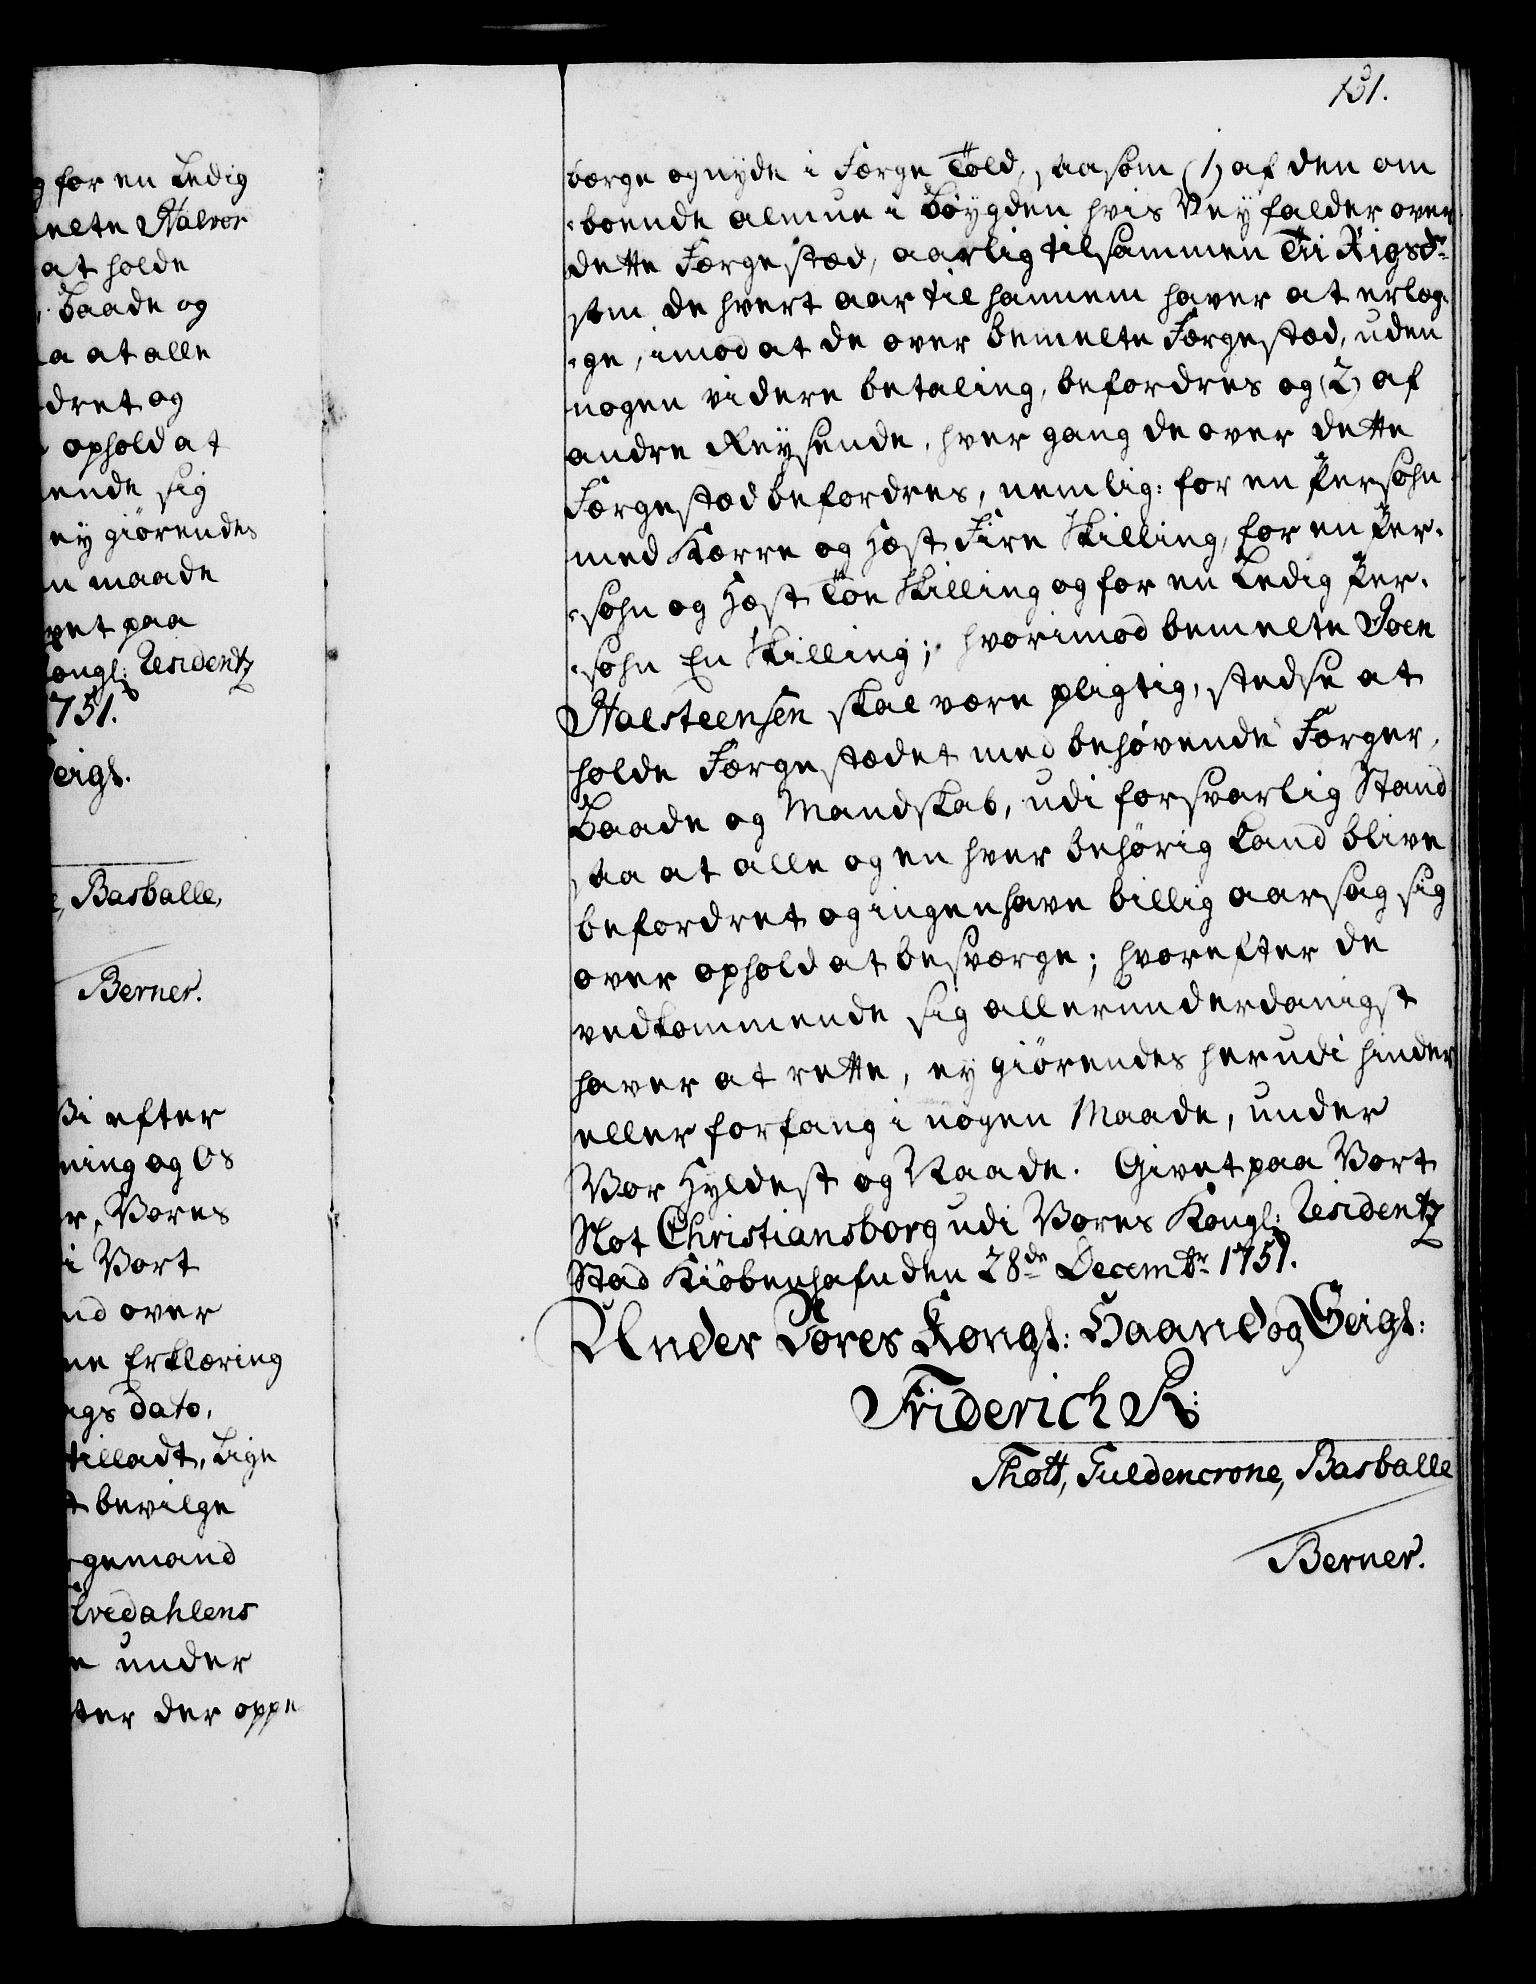 131.
for en Ledig
melte Halvor
at holde
Baade og
a at alle
dret og
ophold at
ende sig
ey giørendes
n maade
vet paa
ongl: Residentz
751.
Seigl.
Basballe,
Berner.
Vi efter
ning og Os
r, Vores
i Vort
nd over
ne Erklæring
ags dato,
tilladt, Lige
t bevilge
rgemand
lvedahlens
e under
ter der oppe
bærge og nyde i Færge Told, saasom (1) af den om
-boende almue i Bøygden hvis Vey falder over
dette Færgestæd, aarlig tilsammen Ti Rigsdr
som de hvert aar til hannem haver at erlæg-
-ge, imod at de over bemelte Færgestæd, uden
nogen videre betaling, befordres og (2) af
andre Reysende, hver gang de over dette
Færgestæd befordres, nemlig: for en Persohn
med Kærre og Hæst Fire Skilling, for en Per-
-sohn og Hæst Toe Skilling og for en Ledig Per-
-sohn En Skilling; hvorimod bemelte Joen
Halsteensen skal være pligtig, stedse at
holde Færgestædet med behøvende Færger,
Baade og Mandskab, udi forsvarlig Stand
saa at alle og en hver behørig kand blive
befordret og ingen have billig aarsag sig
over ophold at besværge; hvorefter de
vedkommende sig allerunderdanigst
haver at rette, ey giørendes herudi hinder
eller forfang i nogen Maade, under
Vor Hyldest og Naade. Givet paa Vort
Slot Christiansborg udi Vores Kongl: Residentz
Stad Kiøbenhafn den 28de Decembr 1751.
Under Vores Kongl: Haand og Seigl:
Friderich R:
Thott, Guldencrone, Basballe
Berner.